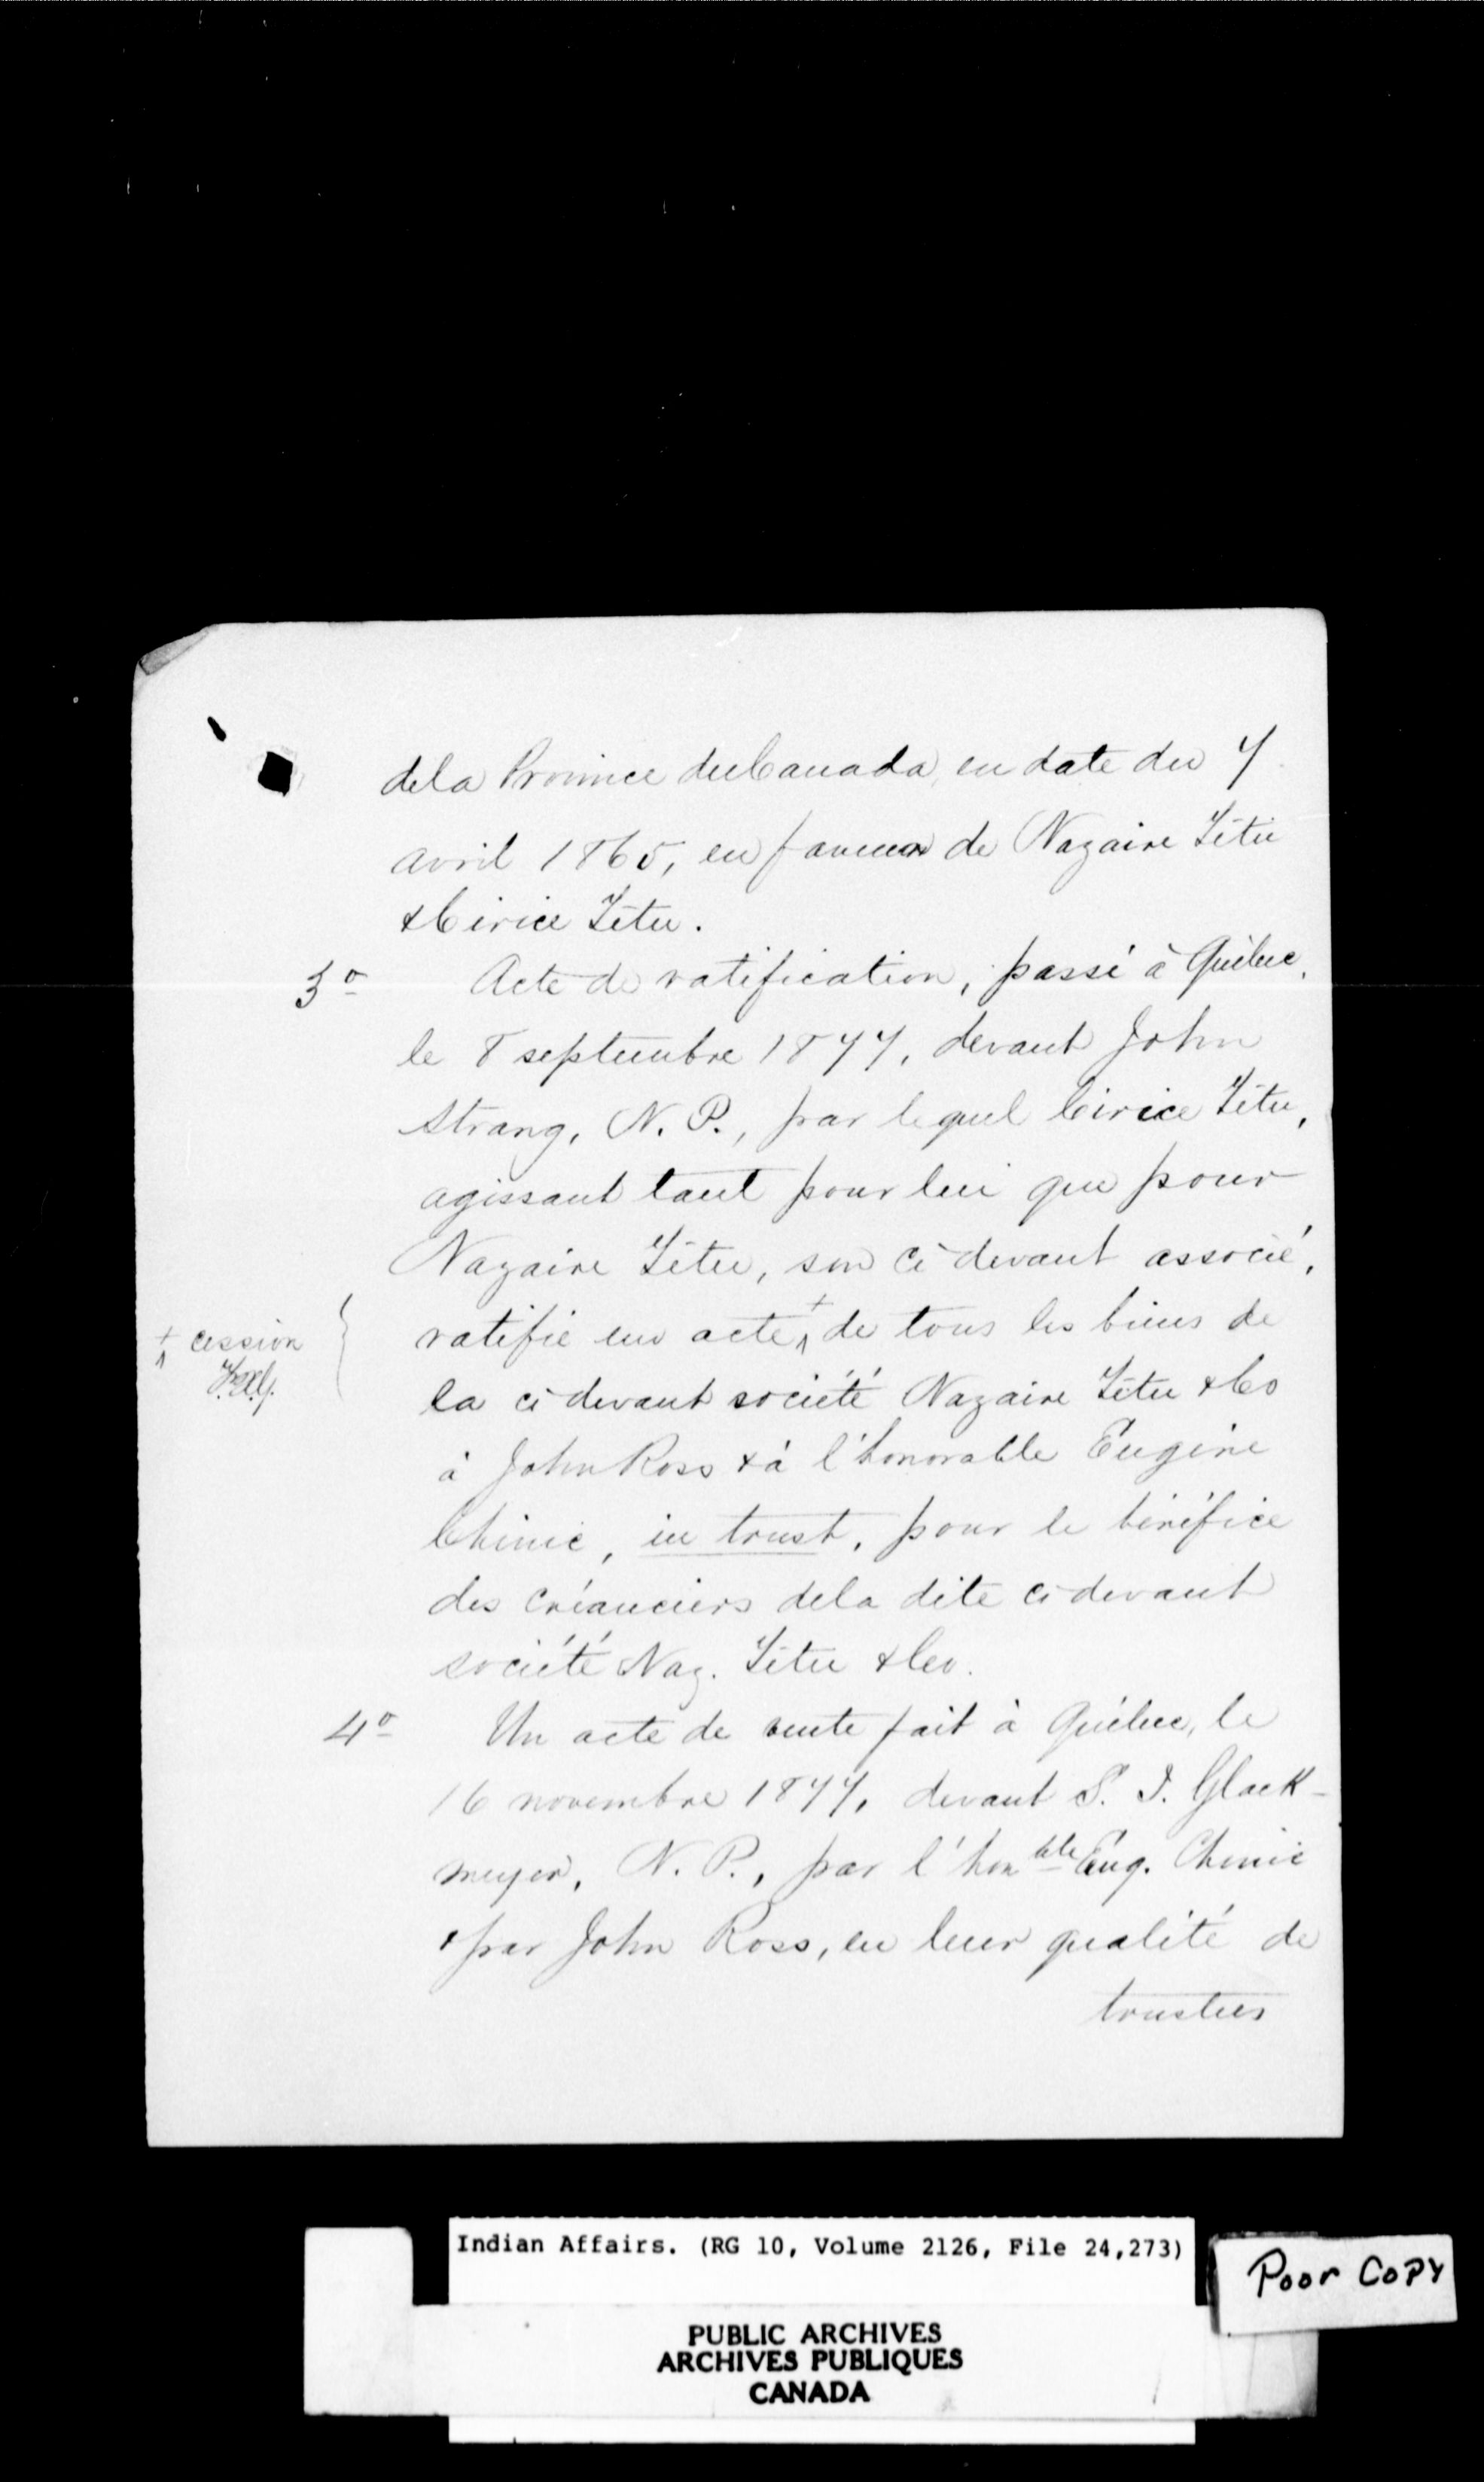 dela Province du Canada, en date du 7
avril 1865, en faveur de Nazaire Têtu
& Cirice Têtu.
3º Acte de ratification, passé à Québec,
le 8 septembre 1877, devant John
Strang, N. P., par lequel Cirice Têtu,
agissant tant pour lui que pour
Nazaire Têtu, son ci-devant associé,
ratifie un acte + de tous les biens de
+ cession
la ci-devant société Nazaire Têtu & Co
à John Ross & à l'honorable Eugène
Chinic, in trust, pour le bénéfice
des créanciers dela dite ci-devant
société Naz. Têtu & Co.
4º Un acte de vente fait à Québec, le
16 novembre 1877, devant S. I. Glack-
meyer, N. P., par l'honble Eug. Chinic
& par John Ross, en leur qualité de
trustees
Indian Affairs. (RG 10, Volume 2126, File 24,273)
Poor Copy
PUBLIC ARCHIVES
ARCHIVES PUBLIQUES
CANADA